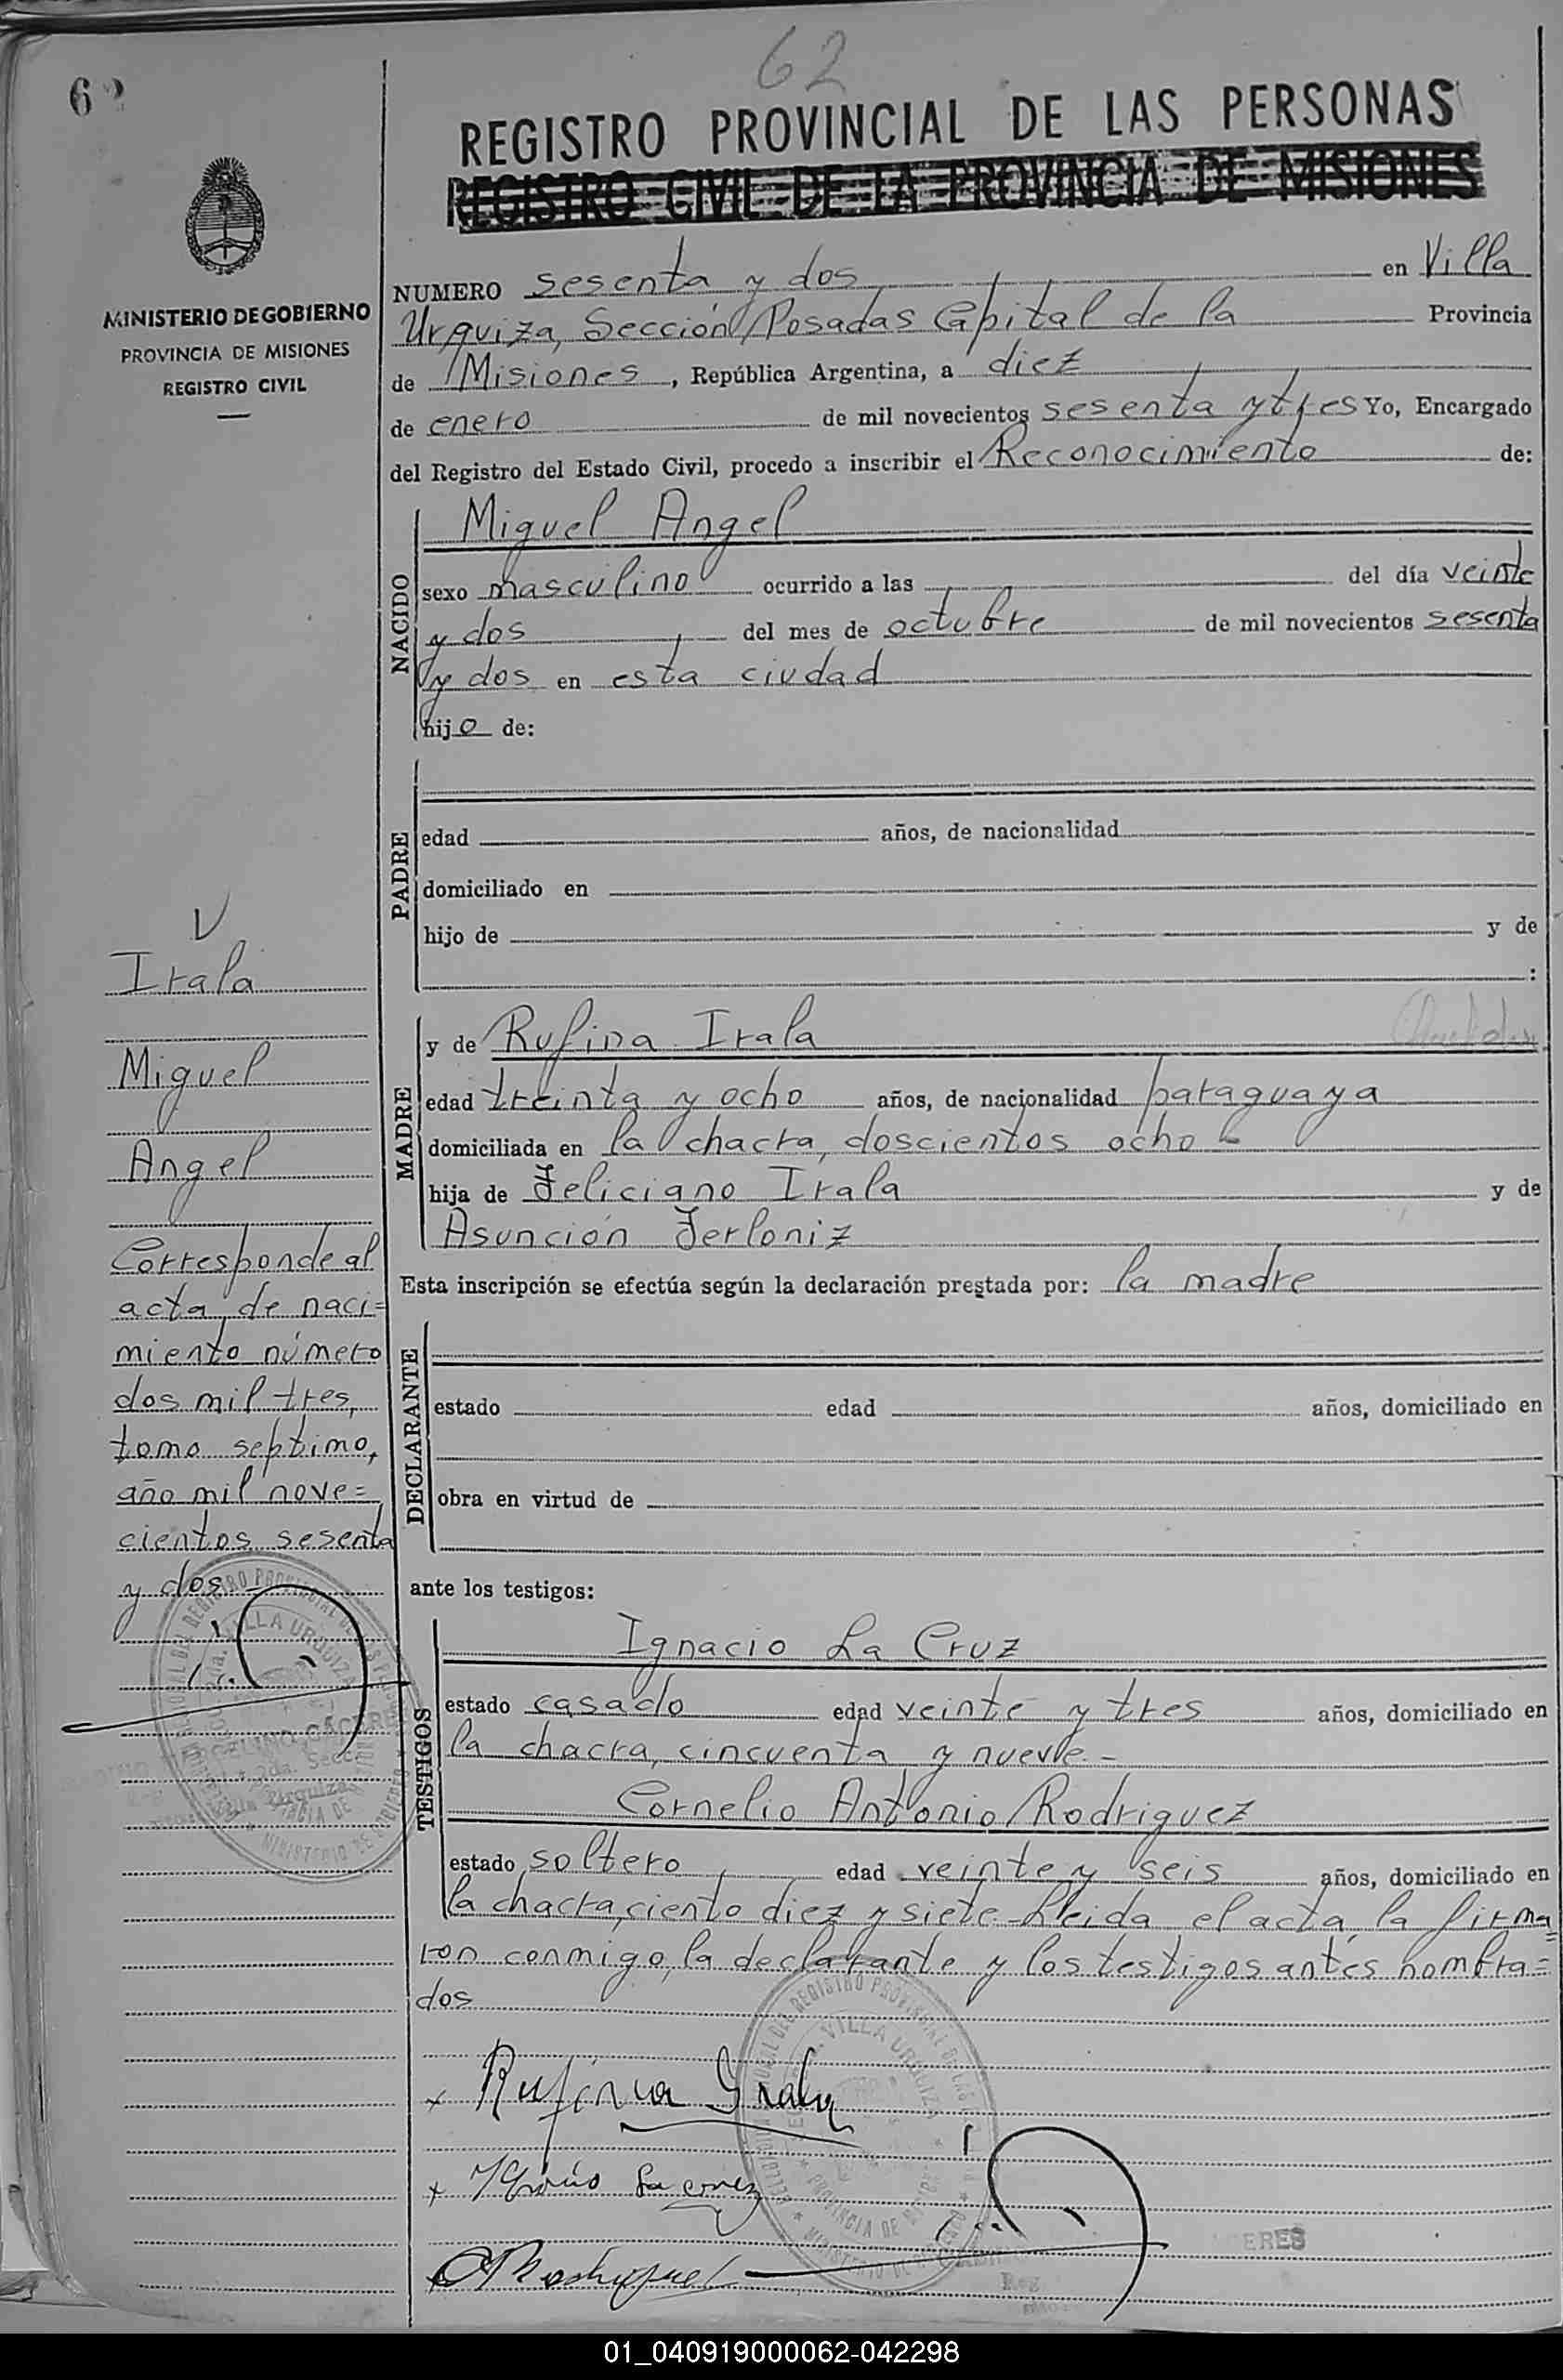 62
62
REGISTRO PROVINCIAL DE LAS PERSONAS
REGISTRO CIVIL DE LA PROVINCIA DE MISIONES
MINISTERIO DE GOBIERNO
PROVINCIA DE MISIONES
REGISTRO CIVIL
NUMERO sesenta y dos en Villa
Urquiza, Sección Posadas Capital de la Provincia
de Misiones, República Argentina, a diez
de enero de mil novecientos sesenta y tres Yo, Encargado
del Registro del Estado Civil, procedo a inscribir el Reconocimiento de:
NACIDO
Miguel Angel
sexo masculino ocurrido a las del día veinte
y dos del mes de octubre de mil novecientos sesenta
y dos en esta ciudad
hijo de:
PADRE
edad años, de nacionalidad
domiciliado en
hijo de y de
:
MADRE
y de Rufina Irala
edad treinta y ocho años, de nacionalidad paraguaya
domiciliada en la chacra, doscientos ocho -
hija de Feliciano Irala y de
Asunción Ferloniz
Esta inscripción se efectúa según la declaración prestada por: la madre
DECLARANTE
estado edad años, domiciliado en
obra en virtud de
ante los testigos:
TESTIGOS
Ignacio La Cruz
estado casado edad veinte y tres años, domiciliado en
la chacra, cincuenta y nueve.-
Cornelio Antonio Rodriguez
estado soltero edad veinte y seis años, domiciliado en
la chacra, ciento diez y siete.-Leida el acta, la firma=
ron conmigo, la declarante y los testigos antes nombra=
dos
Rufina Irala
V
Irala
Miguel
Angel
Corresponde al
acta de naci=
miento número
dos mil tres,
tomo septimo,
año mil nove=
cientos sesenta
y dos
VILLA URQUIZA
VILLA URQUIZA
PROVINCIA DE
01_040919000062-042298